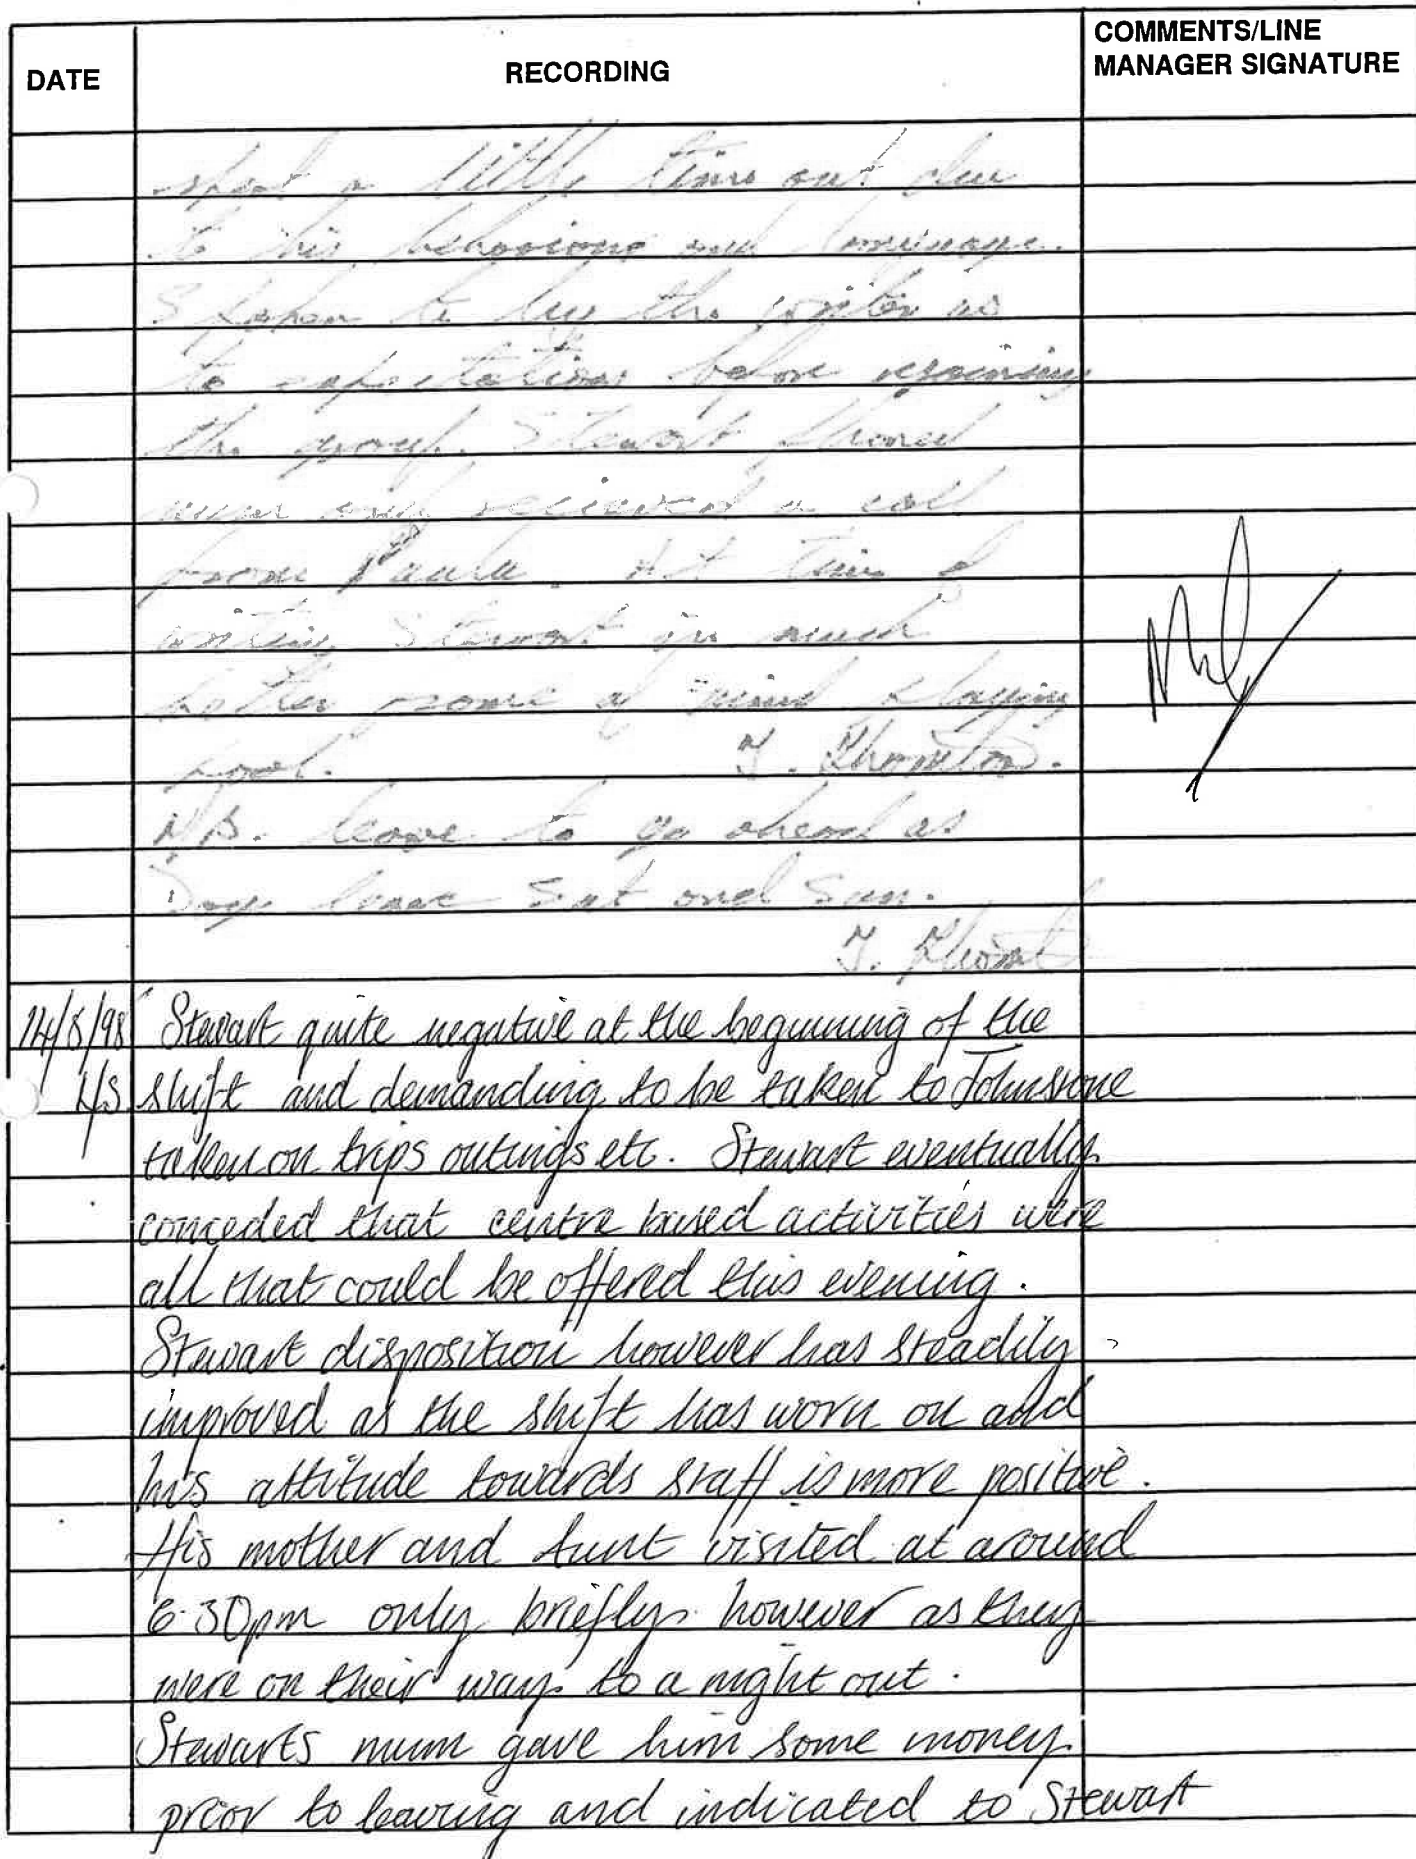 COMMENTS/LINE
MANAGER SIGNATURE
DATE
RECORDING
spent a little time out due
to his behaviour and language.
Spoken to by the writer as
to expectations before rejoining
the group. Stewart phoned
mum and recieved a call
from Paula. At time of
writing Stewart in much
better frame of mind playing
pool.
N.B. leave to go ahead as
Day leave Sat and Sun.
14/8/98 Stewart quite negative at the beginning of the
L/S shift and demanding to be taken to Johnstone
taken on trips outings etc. Stewart eventually
conceded that centre based activities were
all that could be offered this evening.
Stewart disposition however has steadily
improved as the shift has worn on and
his attitude towards staff is more positive.
His mother and Aunt visited at around
6.30pm only briefly however as they
were on their way to a night out.
Stewarts mum gave him some money
prior to leaving and indicated to Stewart